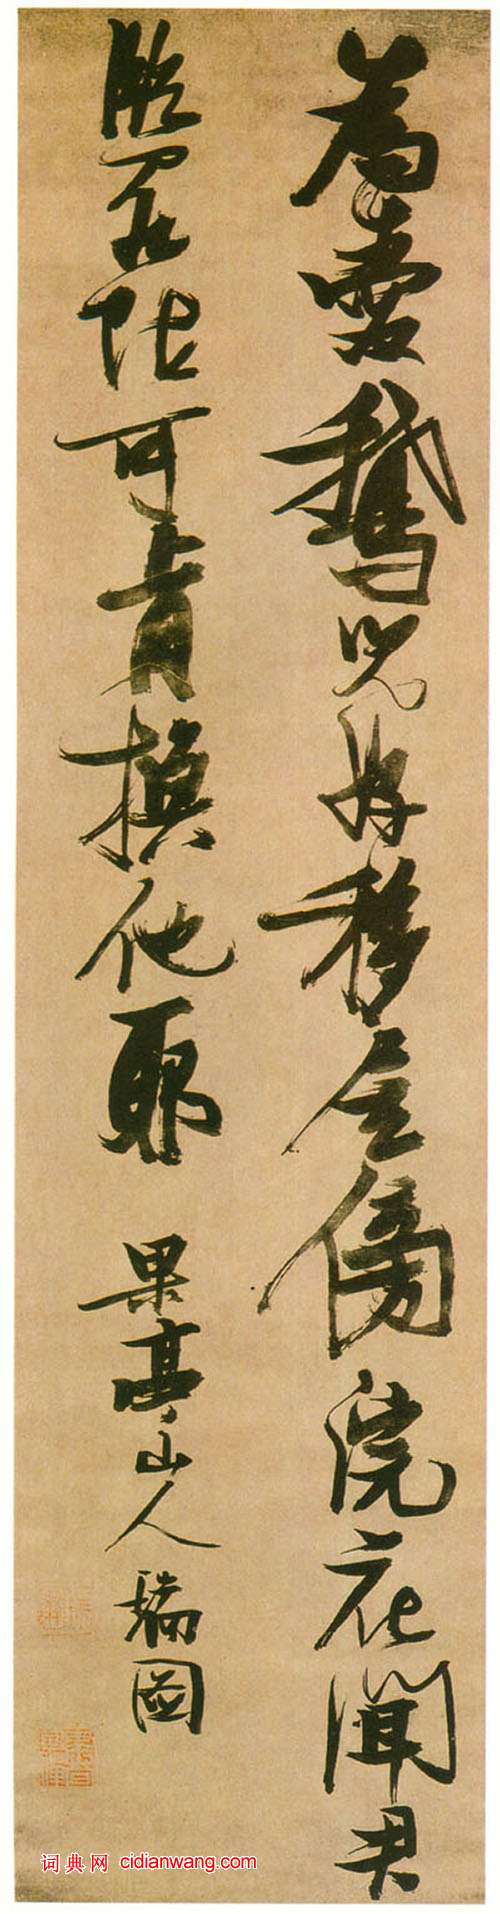 為愛鵝兒好移舍傍浣花聞君
可肯換他耶 果亭山人瑞圖
词典网 cidianwang.com